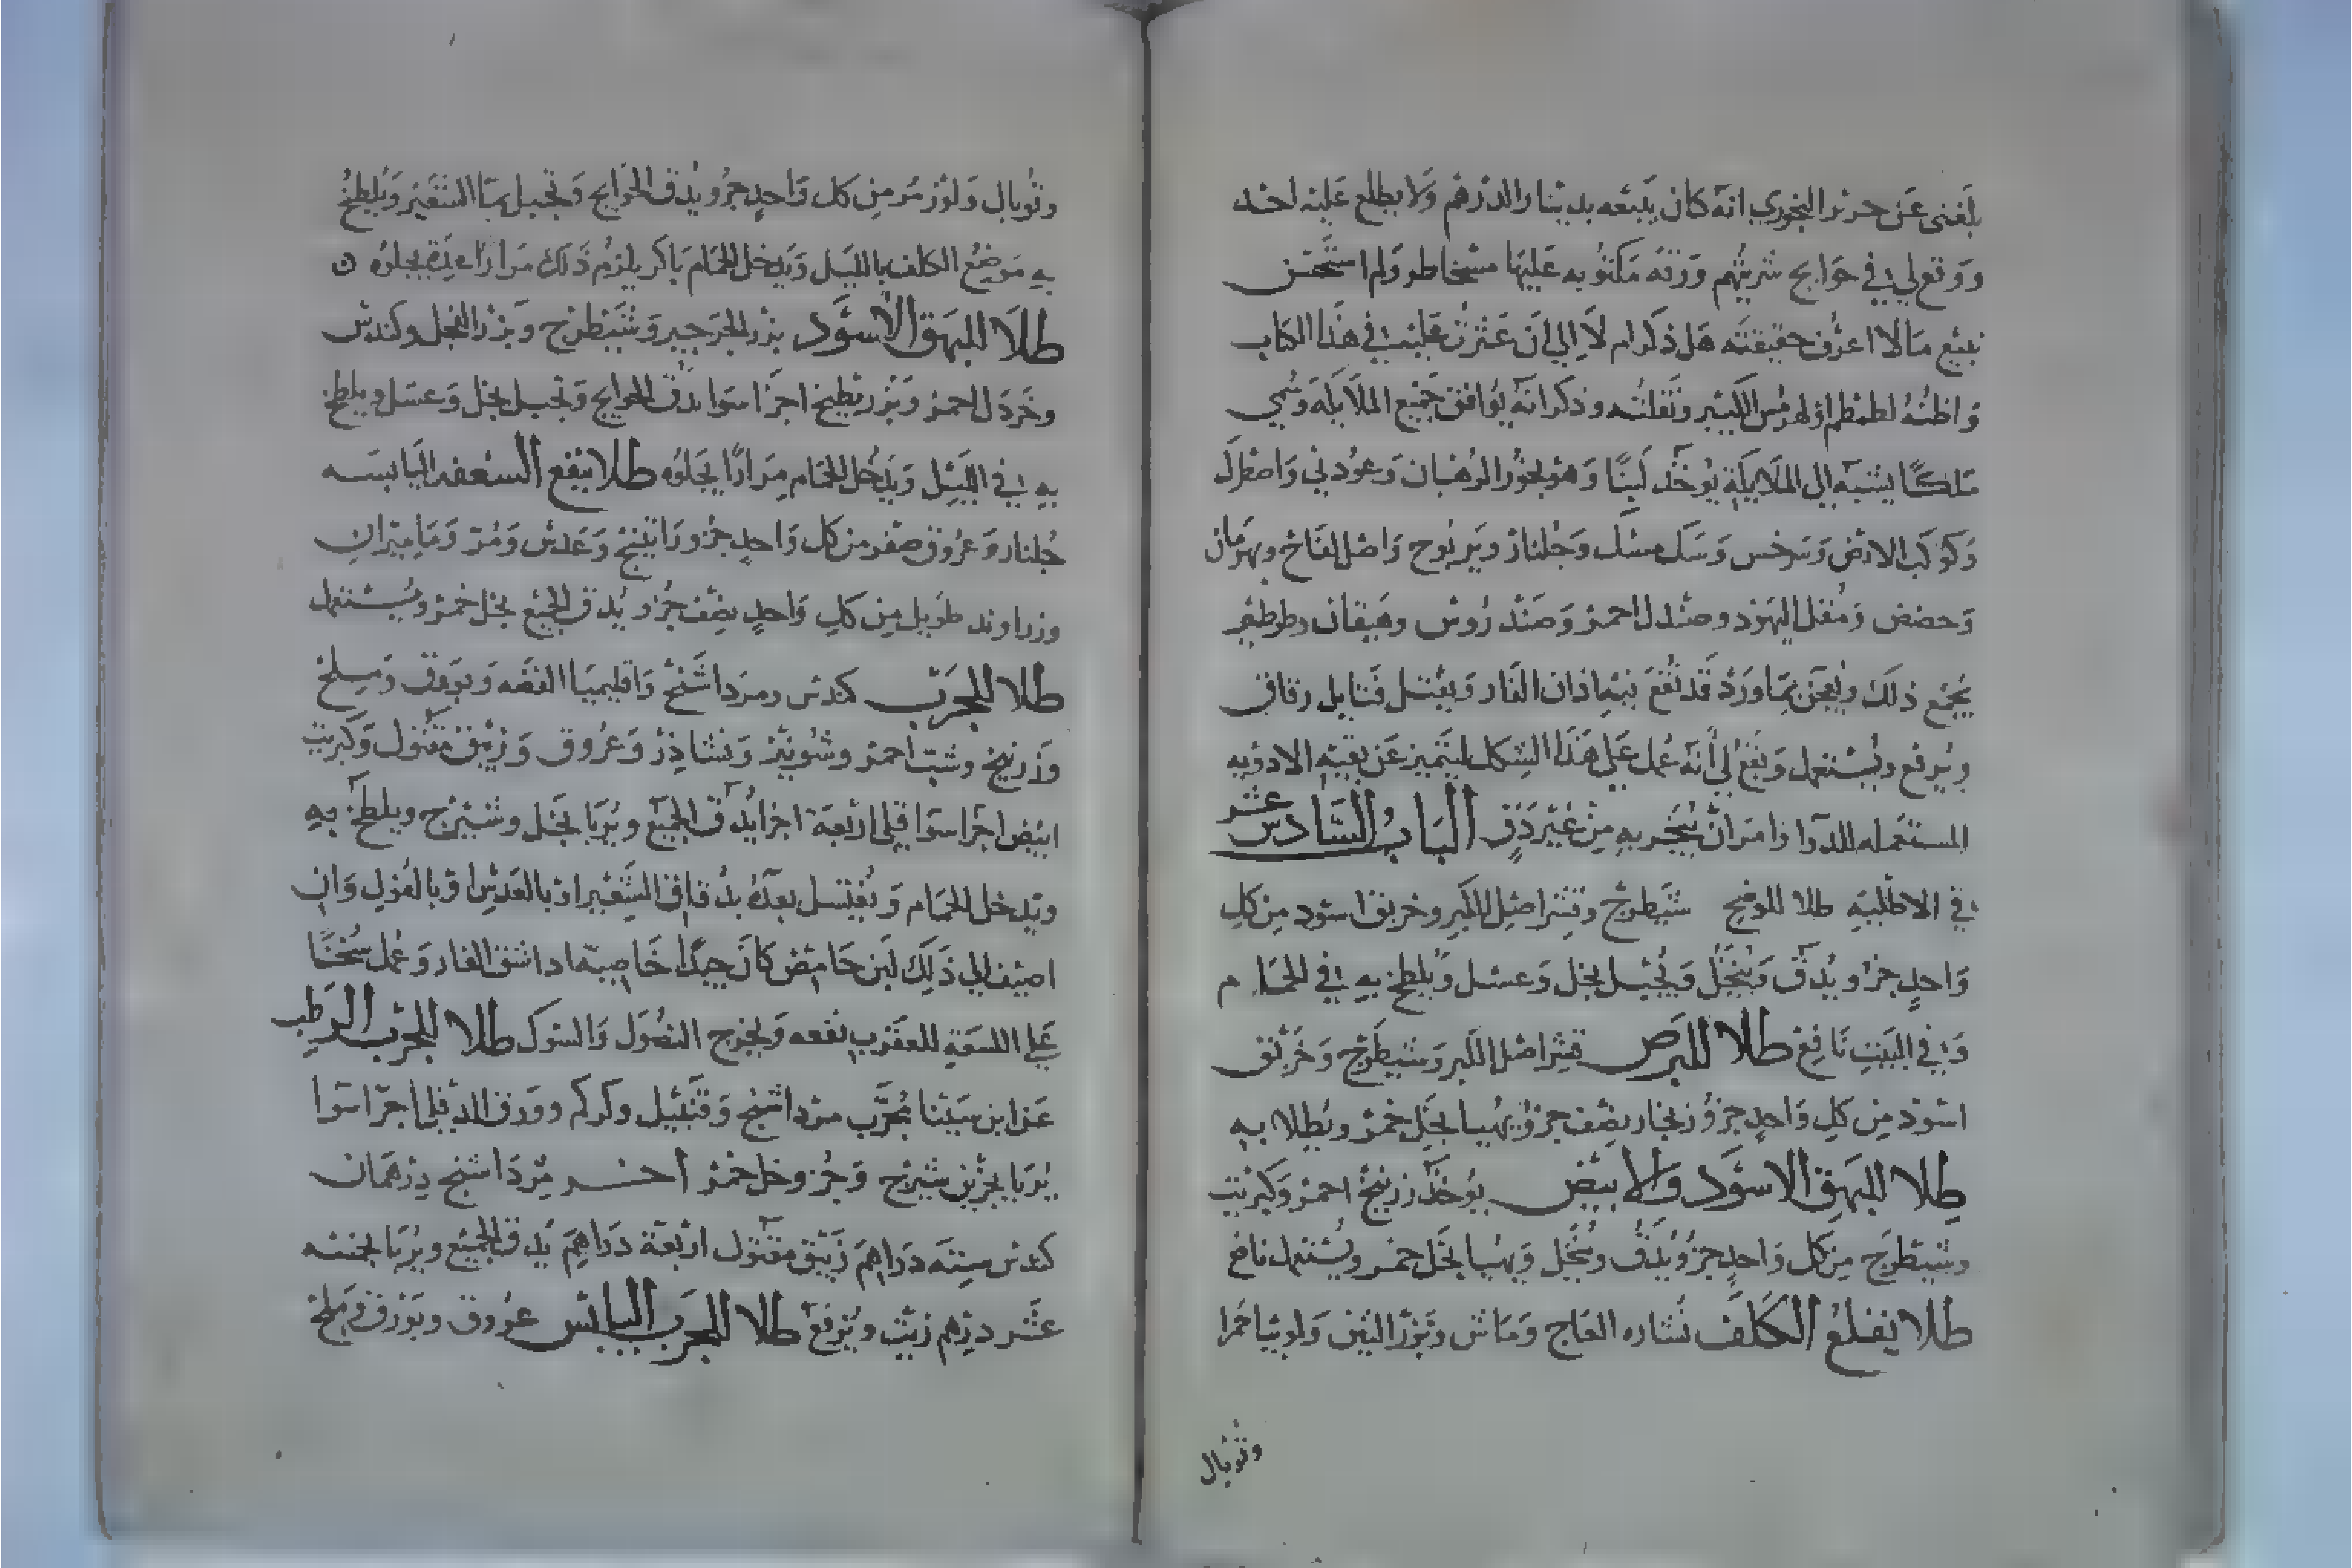 بلغنى عن حريز البخوري انه كان يبيعه بدينار الدرهم ولا يطلع عليه احد
ووقع لي في حوايج شريتهم ورقه مكتوبه عليها مسخاطر ولم استحسن
نبيع مالا اعرف حقيقته هل ذكر ام لا الي ان عثرت عليه في هذا الكتاب
واظنه لطمطم او لهرمس الكبير ونقلته وذكر انه يوافق جميع الملايكه وسمي
ملكًا يشبه الى الملايكة يوخذ لبنًا وهو بخور الرهبان وعود ني واصطرك
وكوكب الارض وسرخس وسك مسك وجلنار ويبروح واصل لفاخ وبهرمان
وحضض ومقل اليهود وصندل احمر وصندروس وهيقان وطرطير
يجمع ذلك ويعجن بماورد قد نقع فيه اذان الفار ويفتل فتايل رقاق
ويرفع ويستعمل ويقع لي أنه عمل على هذا الشكل ليتميز عن بقيه الادويه
المستعمله للدوا وامر ان يبخر به من غير دق الباب السادس عشر
في الاطليه طلا للوضح شيطرج وقشر اصل الكبر وخربق اسود من كل
واحد جزو يدق وينخل ويجبل بخل وعسل ويلطخ به في الحمام
وفي البيت نافع طلا للبرص قشر اصل الكبر وشيطرج وخربق
اسود من كل واحد جزو زنجار نصف جزو يهيا بخل خمر ويطلا به
طلا للبهق الاسود والابيض يوخذ زرنيخ احمر وكبريت
وشيطرج من كل واحد جزو يدق وينخل ويهيا بخل خمر ويستعمل نافع
طلا يقلع الكلف نشاره العاج وماش وبزر التين ولوبيا حمرا
وتوبال
وتوبال ولوز مر من كل واحد جزو يدق الحوايج وتجبل بما الشعير ويلطخ
به موضع الكلف بالليل ويدخل الحمام باكر يلزم ذلك مرارا يجلوه
طلا للبهق الاسود بزر الجرجير وشيطرج وبزر الفجل وكندس
وخردل احمر وبزر بطيخ اجزا سوا تدق الحوايج وتجبل بخل وعسل ويلطخ
به في الليل ويدخل الحمام مرارًا يجلوه طلا ينفع السعفه اليابسه
جلنار وعروق صفر من كل واحد جزو راتينج وعدس ومر وماميران
وزراوند طويل من كل واحد نصف جزو يدق الجميع بخل خمر ويستعمل
طلا للجرب كندس ومرداسنج واقليميا الفضه وبورق وملح
وزرنيخ وشب احمر وشونيز ونشادر وعروق وزيبق مقتول وكبريت
ابيض اجزا سوا قلي اربعة اجزا يدق الجميع ويربا بخل وشيرج ويلطخ به
ويدخل الحمام ويغتسل بعده بدقاق الشعير او بالعدس او بالفول وان
اضيف الى ذلك لبن حامض كان جيدًا خاصيه اذا شق الفار وعمل سخنًا
على اللسعة للعقرب نفعه ويخرج النصول والشوك طلا للجرب الرطب
عن ابن سينا مجرب مرداسنج وقنبيل وكركم وورق الدفلي اجزا سوا
يربا بجزين شيرج وجزو خل خمر أخـــر مرداسنج درهمان
كندس سته دراهم زيبق مقتول اربعة دراهم يدق الجميع ويربا بخمسه
عشر درهم زيت ويرفع طلا للجرب اليابس عروق وبورق وملح